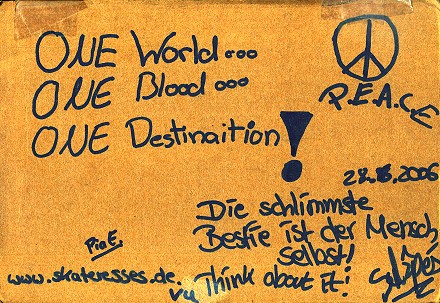 ONE World...
ONE Blood...
ONE Destinaition!
P.E.A.C.E
Die schlimmste
Bestie ist der Mensch
selbst!
Think about it!
Pia E.
www.skateresses.de